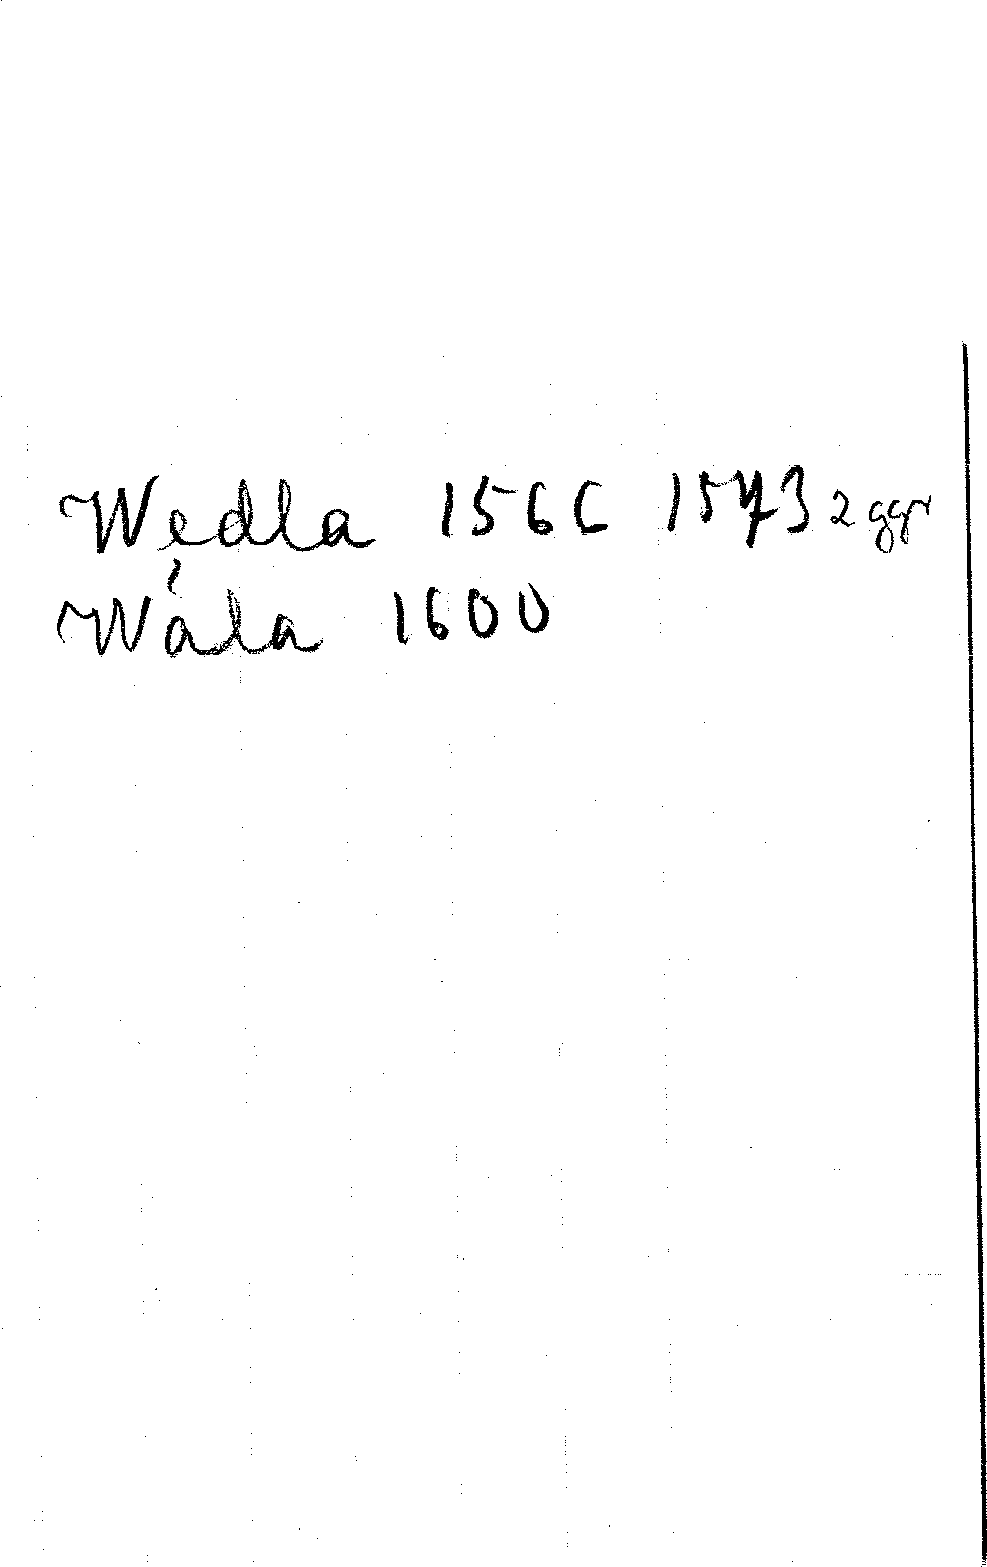 Wedla 1566 1573 2 ggr
Wåla 1600